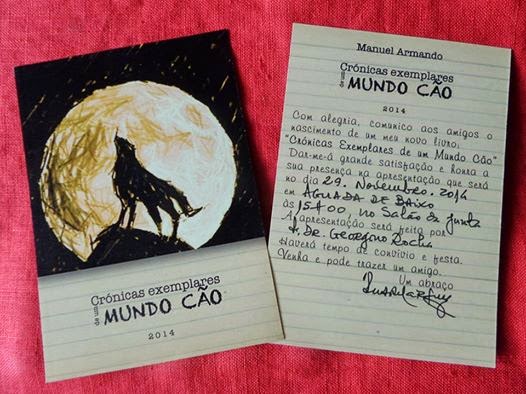 Crónicas exemplares
de um MUNDO CÃO
2014
Manuel Armando
Crónicas exemplares
de um MUNDO CÃO
2014
Com alegria, comunico aos amigos o
nascimento de um meu novo livro:
"Crónicas Exemplares de um Mundo Cão"
Dar-me-á grande satisfação e honra a
sua presença na apresentação que será
no dia 29. Novembro. 2014
em AGUADA DE BAIXO
às 15H00, no Salão da Junta
A apresentação será feita por
P. DR. Georgino Rocha
Haverá tempo de convívio e festa.
Venha e pode trazer um amigo.
Um abraço